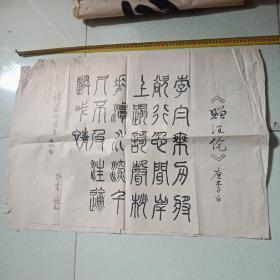 《赠汪伦》唐李白
李白乘舟將
欲行忽聞岸
上踏歌聲桃
花潭水深千
尺不及汪倫
送我情